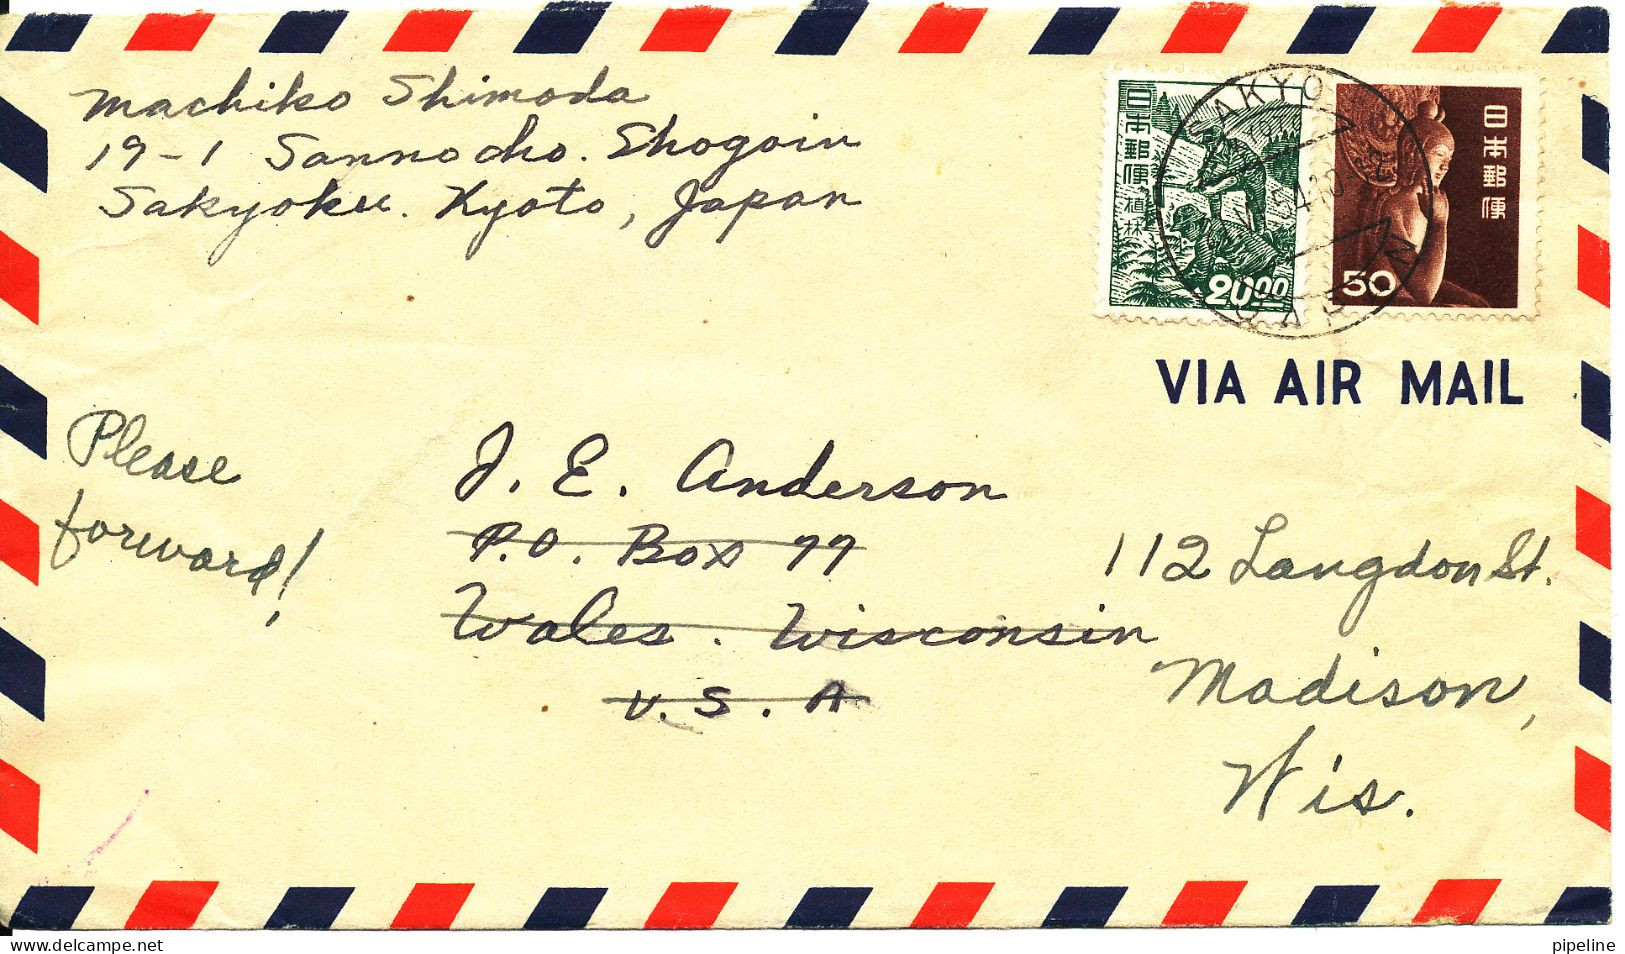 Machiko Shimoda
19-1 Sannocho. Shogoin
Sakyoku. Kyoto, Japan
日本郵便
植林
20.00
日本郵便
50
SAKYO
JAPAN
VIA AIR MAIL
Please
forward!
J. E. Anderson
P.O. Box 77
Wales. Wisconsin
U. S. A
112 Langdon St.
Madison,
Wis.
pipeline